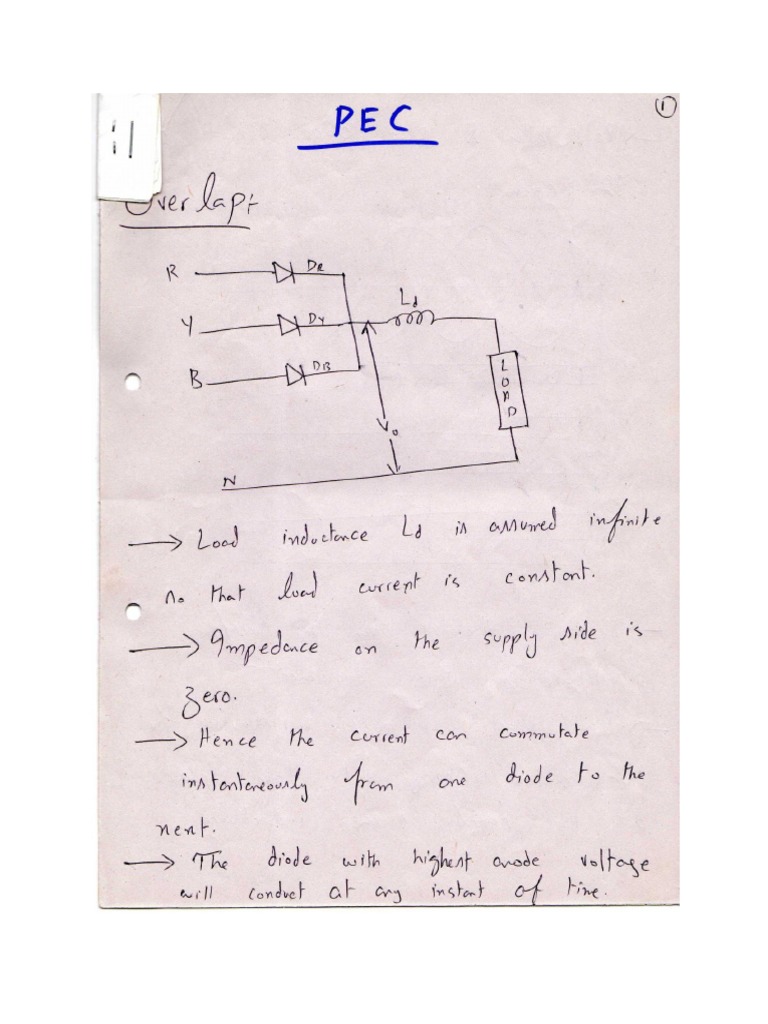 PEC
1
:11
Overlap:
R
DR
Y
DY
B
DB
Ld
LOAD
Vo
N
→ Load inductance Ld is assumed infinite
so that load current is constant.
→ Impedance on the supply side is
zero.
→ Hence the current can commutate
instantaneously from one diode to the
next.
→ The diode with highest anode voltage
will conduct at any instant of time.